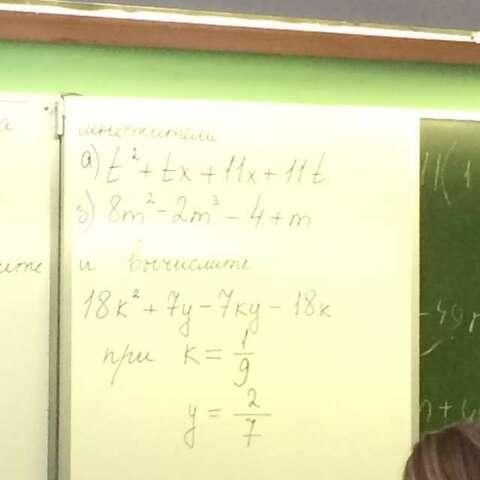 множители
а) t² + tx + 11x + 11t
б) 8m² - 2m³ - 4 + m
и вычислите
18k² + 7y - 7ky - 18k
при k = 1/9
y = 2/7